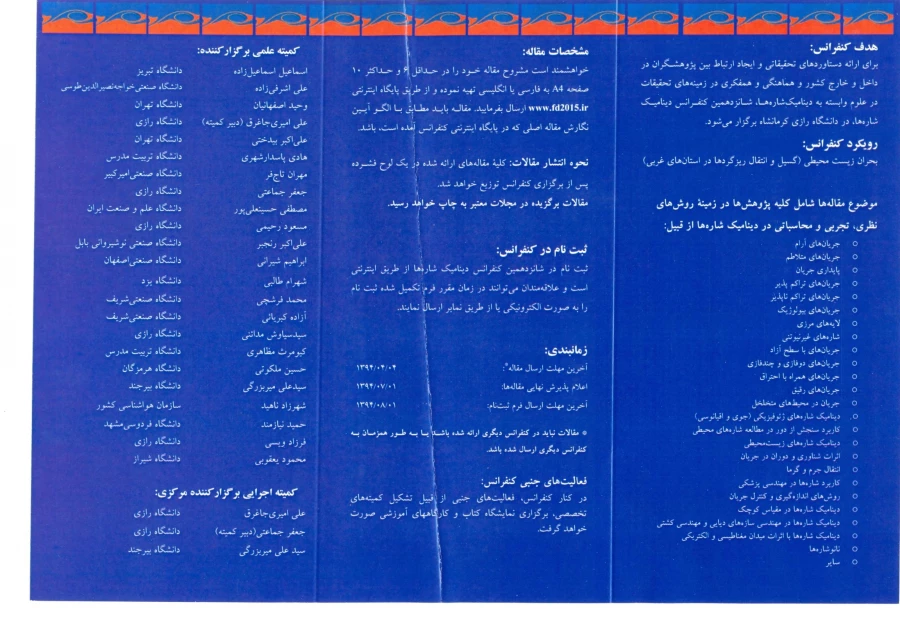 هدف کنفرانس:
برای ارائه دستاوردهای تحقیقاتی و ایجاد ارتباط بین پژوهشگران در
داخل و خارج کشور و هماهنگی و همفکری در زمینه‌های تحقیقات
در علوم وابسته به دینامیک‌شاره‌ها، شانزدهمین کنفرانس دینامیک
شاره‌ها، در دانشگاه رازی کرمانشاه برگزار می‌شود.
رویکرد کنفرانس:
بحران زیست محیطی (گسیل و انتقال ریزگردها در استان‌های غربی)
موضوع مقاله‌ها شامل کلیه پژوهش‌ها در زمینهٔ روش‌های
نظری، تجربی و محاسباتی در دینامیک شاره‌ها از قبیل:
○ جریان‌های آرام
○ جریان‌های متلاطم
○ پایداری جریان
○ جریان‌های تراکم پذیر
○ جریان‌های تراکم ناپذیر
○ جریان‌های بیولوژیک
○ لایه‌های مرزی
○ شاره‌های غیرنیوتنی
○ جریان‌های با سطح آزاد
○ جریان‌های دوفازی و چندفازی
○ جریان‌های همراه با احتراق
○ جریان‌های رقیق
○ جریان در محیط‌های متخلخل
○ دینامیک شاره‌های ژئوفیزیکی (جوی و اقیانوسی)
○ کاربرد سنجش از دور در مطالعه شاره‌های محیطی
○ دینامیک شاره‌های زیست‌محیطی
○ اثرات شناوری و دوران در جریان
○ انتقال جرم و گرما
○ کاربرد شاره‌ها در مهندسی پزشکی
○ روش‌های اندازه‌گیری و کنترل جریان
○ دینامیک شاره‌ها در مقیاس کوچک
○ دینامیک شاره‌ها در مهندسی سازه‌های دریایی و مهندسی کشتی
○ دینامیک شاره‌ها با اثرات میدان مغناطیسی و الکتریکی
○ نانوشاره‌ها
○ سایر
مشخصات مقاله:
خواهشمند است مشروح مقاله خود را در حداقل ۶ و حداکثر ۱۰
صفحه A4 به فارسی یا انگلیسی تهیه نموده و از طریق پایگاه اینترنتی
www.fd2015.ir ارسال بفرمایید. مقاله باید مطابق با الگو آیین
نگارش مقاله اصلی که در پایگاه اینترنتی کنفرانس آمده است، باشد.
نحوه انتشار مقالات: کلیهٔ مقاله‌های ارائه شده در یک لوح فشرده
پس از برگزاری کنفرانس توزیع خواهد شد.
مقالات برگزیده در مجلات معتبر به چاپ خواهد رسید.
ثبت نام در کنفرانس:
ثبت نام در شانزدهمین کنفرانس دینامیک شاره‌ها از طریق اینترنتی
است و علاقه‌مندان می‌توانند در زمان مقرر فرم تکمیل شده ثبت نام
را به صورت الکترونیکی یا از طریق نمابر ارسال نمایند.
زمانبندی:
آخرین مهلت ارسال مقاله*: ۱۳۹۴/۰۴/۰۴
اعلام پذیرش نهایی مقاله‌ها: ۱۳۹۴/۰۷/۰۱
آخرین مهلت ارسال فرم ثبت‌نام: ۱۳۹۴/۰۸/۰۱
* مقالات نباید در کنفرانس دیگری ارائه شده باشند یا به طور همزمان به
کنفرانس دیگری ارسال شده باشد.
فعالیت‌های جنبی کنفرانس:
در کنار کنفرانس، فعالیت‌های جنبی از قبیل تشکیل کمیته‌های
تخصصی، برگزاری نمایشگاه کتاب و کارگاههای آموزشی صورت
خواهد گرفت.
کمیته علمی برگزارکننده:
اسماعیل اسماعیل‌زاده دانشگاه تبریز
علی اشرفی‌زاده دانشگاه صنعتی‌خواجه‌نصیرالدین‌طوسی
وحید اصفهانیان دانشگاه تهران
علی امیری‌جاغرق (دبیر کمیته) دانشگاه رازی
علی‌اکبر بیدختی دانشگاه تهران
هادی پاسدارشهری دانشگاه تربیت مدرس
مهران تاج‌فر دانشگاه صنعتی‌امیرکبیر
جعفر جماعتی دانشگاه رازی
مصطفی حسینعلی‌پور دانشگاه علم و صنعت ایران
مسعود رحیمی دانشگاه رازی
علی‌اکبر رنجبر دانشگاه صنعتی نوشیروانی بابل
ابراهیم شیرانی دانشگاه صنعتی‌اصفهان
شهرام طالبی دانشگاه یزد
محمد فرشچی دانشگاه صنعتی‌شریف
آزاده کبریائی دانشگاه صنعتی‌شریف
سیدسیاوش مدائنی دانشگاه رازی
کیومرث مظاهری دانشگاه تربیت مدرس
حسین ملکوتی دانشگاه هرمزگان
سیدعلی میربزرگی دانشگاه بیرجند
شهرزاد ناهید سازمان هواشناسی کشور
حمید نیازمند دانشگاه فردوسی‌مشهد
فرزاد ویسی دانشگاه رازی
محمود یعقوبی دانشگاه شیراز
کمیته اجرایی برگزارکننده مرکزی:
علی امیری‌جاغرق دانشگاه رازی
جعفر جماعتی(دبیر کمیته) دانشگاه رازی
سید علی میربزرگی دانشگاه بیرجند